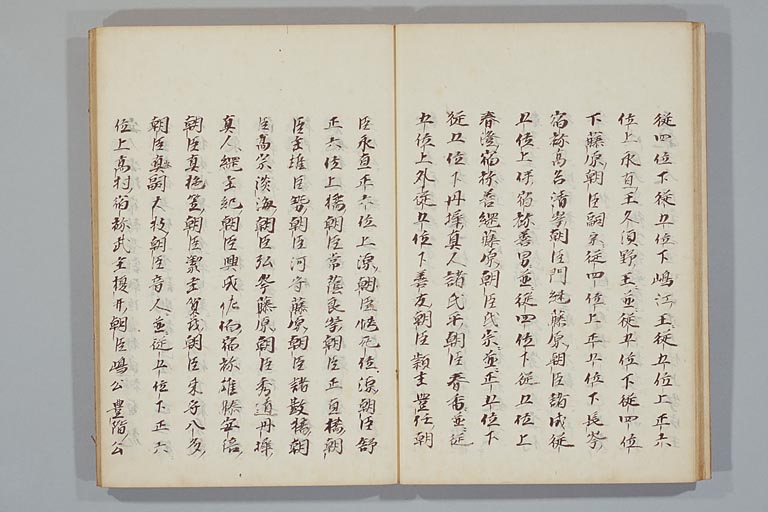 從四位下從五位下嶋江王從五位上正六
位上永直王久須野王並從五位下從四位
下藤原朝臣嗣宗從四位上正五位下長岑
宿祢高名清岑朝臣門継藤原朝臣諸成從
五位上伴宿祢善男並從四位下從五位上
春澄宿祢善縄藤原朝臣氏宗並正五位下
從五位下丹墀真人諸氏平朝臣春香並從
五位上外從五位下善友朝臣頴主豊住朝
臣永直正六位上源朝臣 位源朝臣舒
正六位上橘朝臣常蔭良岑朝臣正直橘朝
臣主雄巨勢朝臣河守藤原朝臣諸数橘朝
臣高宗淡海朝臣弘岑藤原朝臣秀道丹墀
真人縄主紀朝臣興成佐伯宿祢雄勝安倍
朝臣真 朝臣 主賀茂朝臣 八多
朝臣真嗣大枝朝臣音人並從五位下正六
位上高村宿祢武主榎井朝臣嶋公豊階公